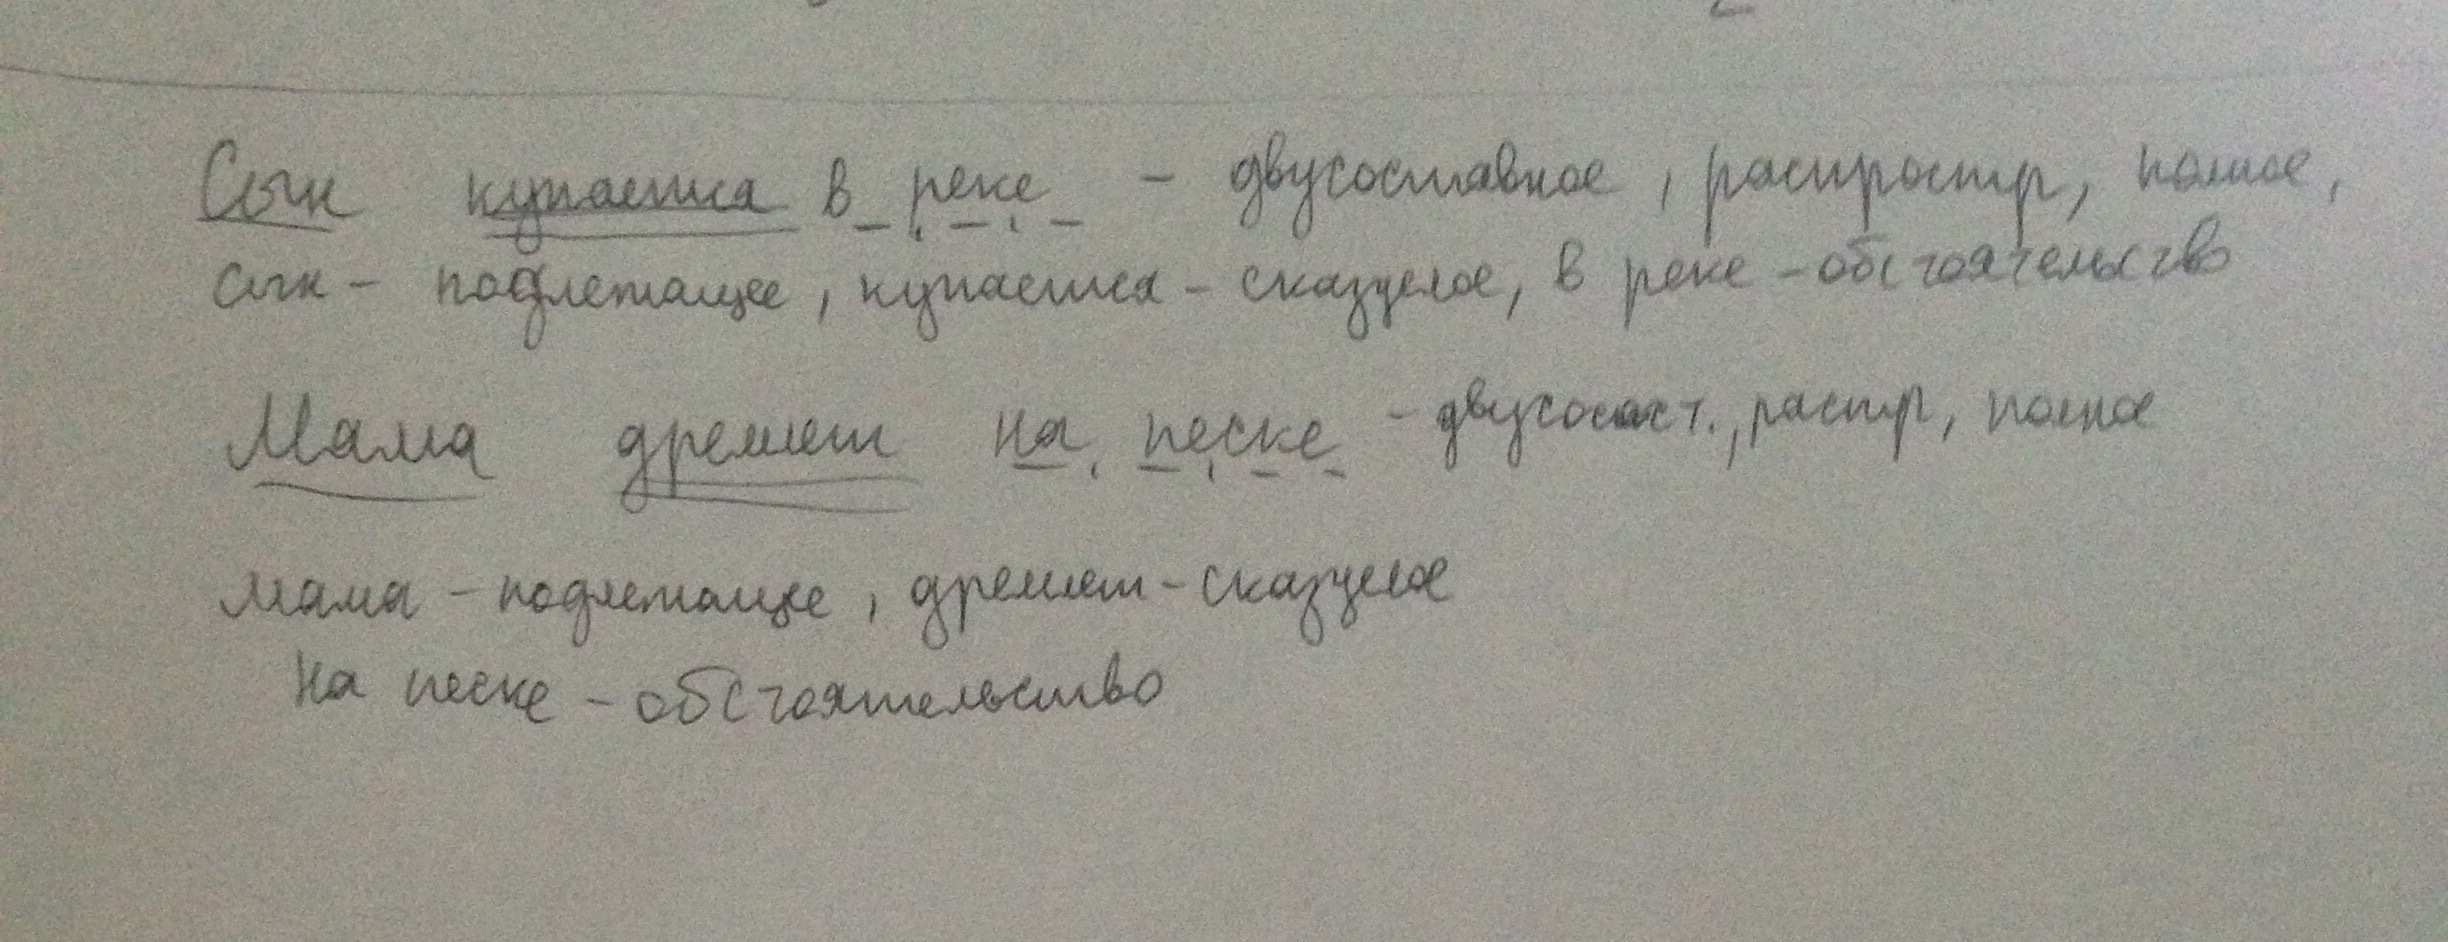 Сын купается в реке - двусоставное, распростр, полное,
сын - подлежащее, купается - сказуемое, в реке - обстоятельство
Мама дремлет на песке - двусост., распр, полное
мама - подлежащее, дремлет - сказуемое
на песке - обстоятельство